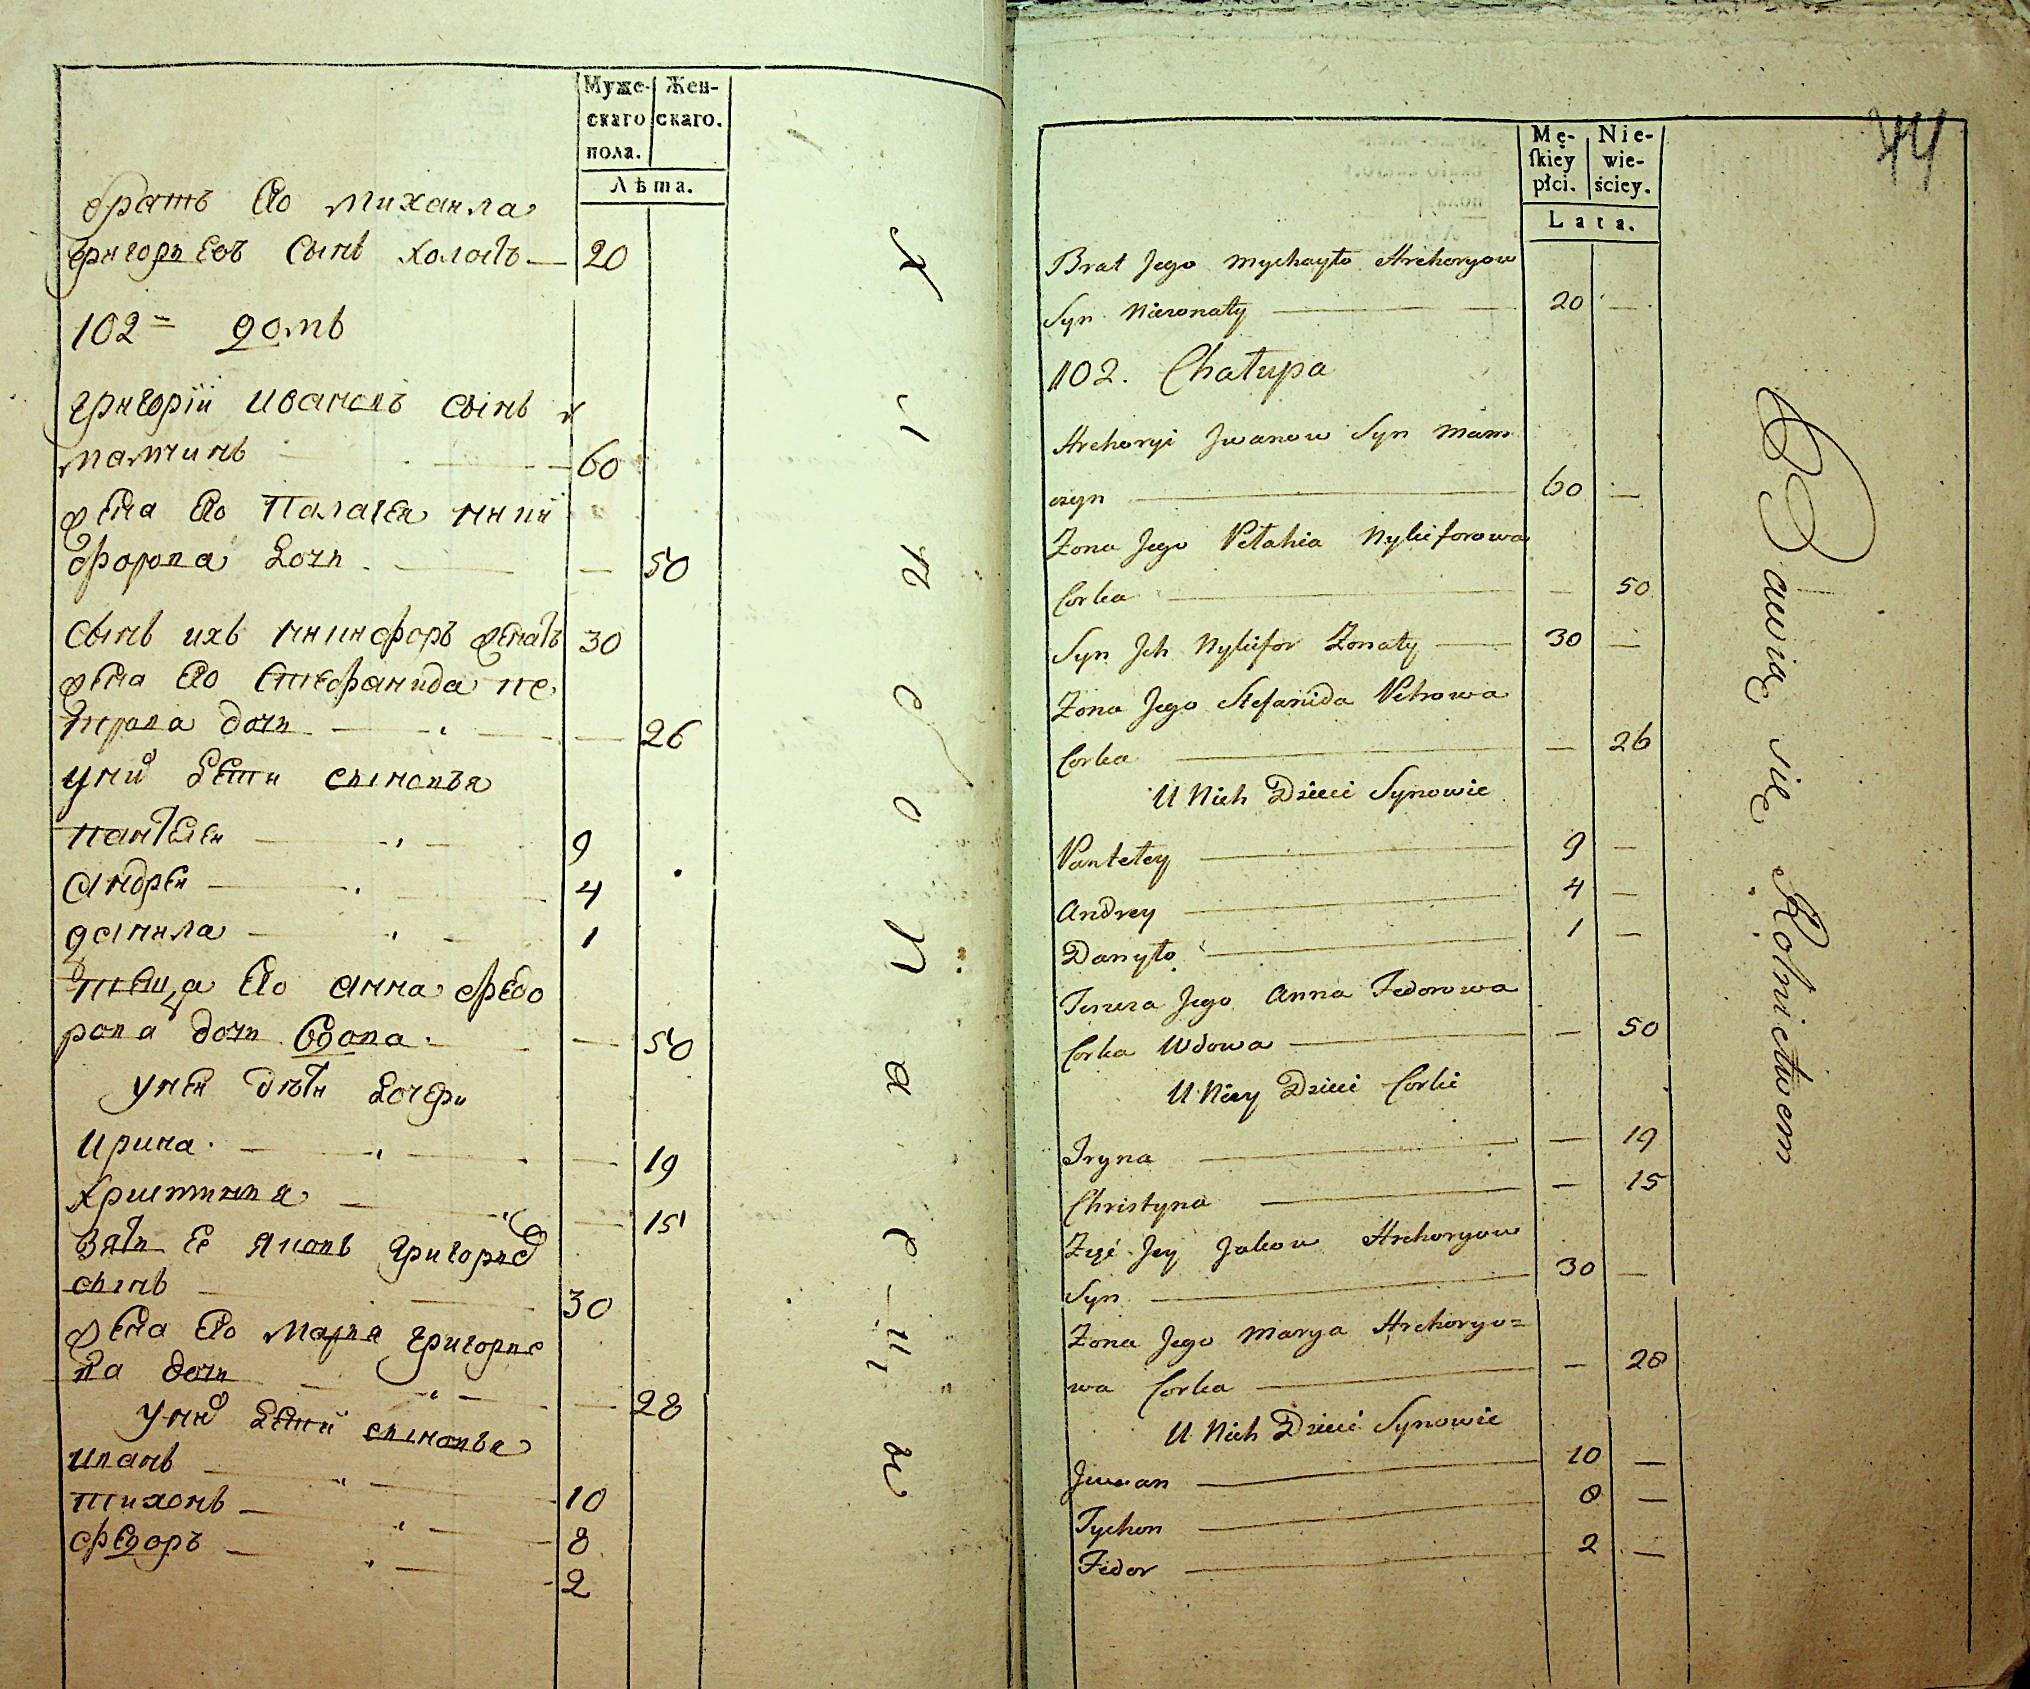 Муже- Жен-
скаго скаго.
пола.
Лѣта.
братъ Его Михаила
григорьевъ сынъ холостъ — 20
102 = домъ
григорій Ивановъ сынъ
мамчинъ — 60
жена Его Палагея ники
форова дочь — — 50
сынъ ихъ никифоръ женатъ 30
жена Его Стефанида пе
трова дочь — — 26
унихъ дети сыновья
пантелеи — 9
андреи — 4
данила — 1
теща Его анна федо
рова дочь вдова — — 50
унеи дѣти дочери
ирина — — 19
христинья — — 15
зять Ее яковъ григорьев
сынъ — 30
жена Его марья григорье
ва дочь — — 28
унихъ дети сыновья
иванъ — 10
тихонъ — 8
федоръ — 2
44
Mę- Nie-
ſkiey wie-
płci. ściey.
Lata.
Brat Jego Mychayło Hrehoryow
Syn Nieżonaty — 20 —
102. Chałupa
Hrehoryi Jwanow Syn Mam
czyn — 60 —
Żona Jego Pełahia Nykiforowa
Corka — — 50
Syn Jch Nykifor Żonaty — 30 —
Żona Jego Stefanida Petrowa
Corka — — 26
U Nich Dzieci Synowie
Pantełey — 9 —
Andrey — 4 —
Danyło — 1 —
Jego Anna Fedorowa
Corka Wdowa — — 50
U Niey Dzieci Corki
Iryna — — 19
Christyna — — 15
Zięć Jey Jakow Hrehoryow
Syn — 30 —
Żona Jego Marya Hrehoryo=
wa Corka — — 28
U Nich Dzieci Synowie
Jwan — 10 —
Tychon — 8 —
Fedor — 2 —
Bawią się Rolnictwem